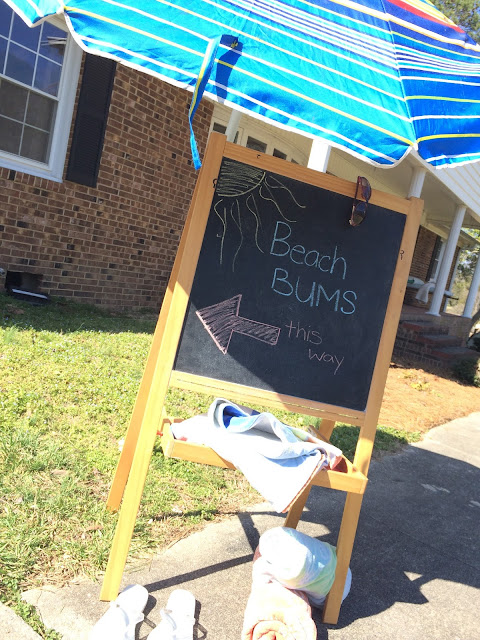 Beach
BUMS
this
way